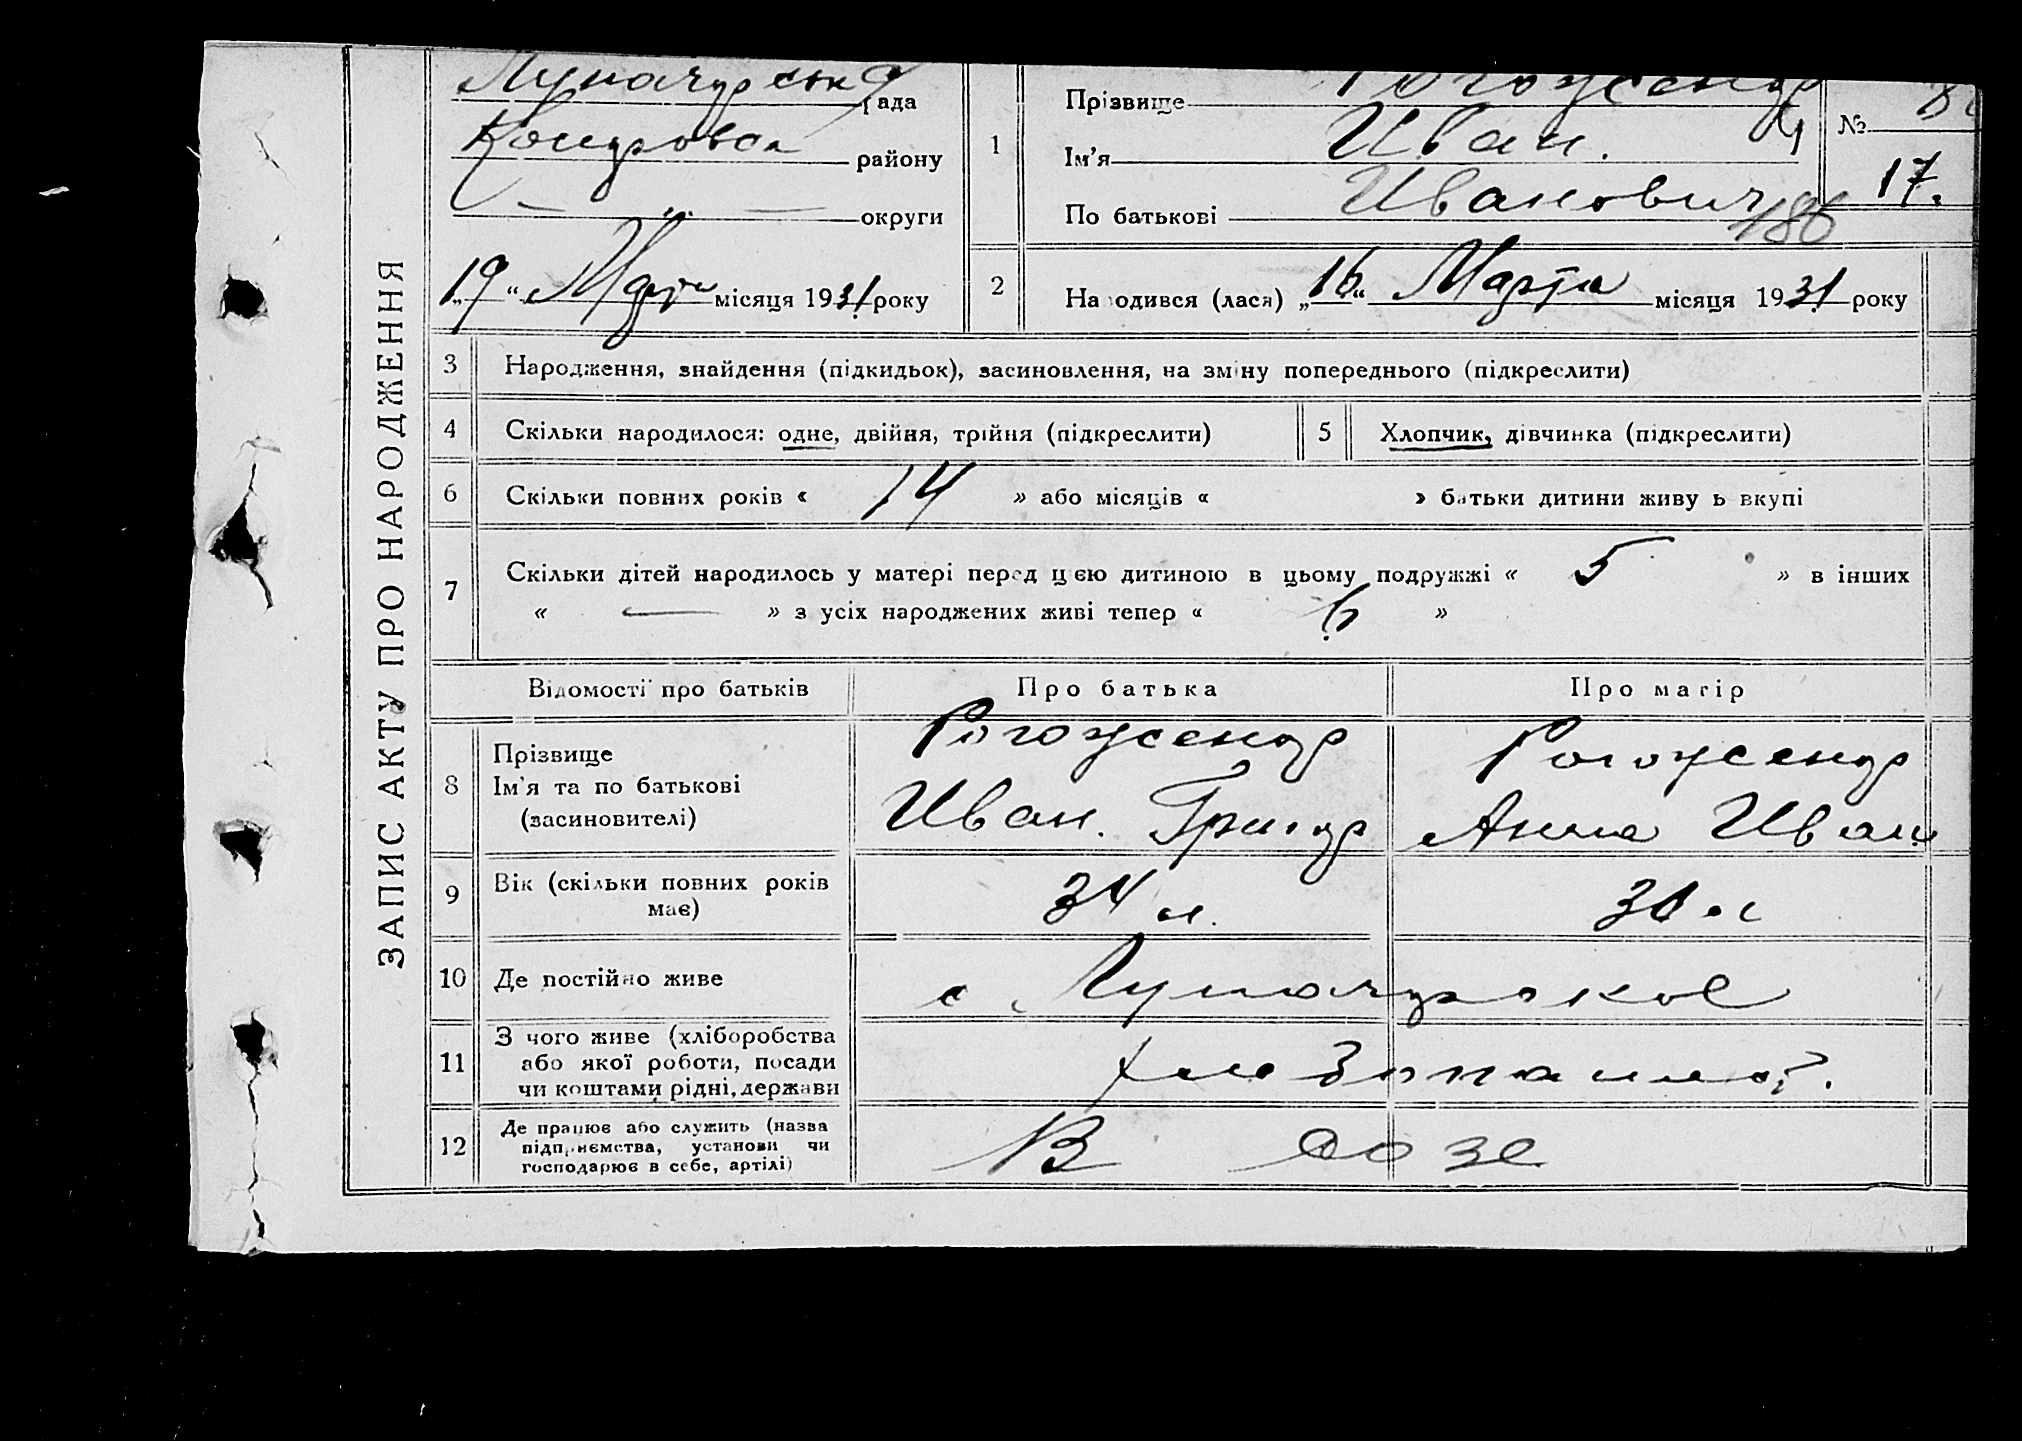 ЗАПИС АКТУ ПРО НАРОДЖЕННЯ
рада
району
округи
„19“ Марта місяця 1931 року
1
Прізвище
Ім’я Иван.
По батькові Иванович
186
№
17.
2
Народився (лася) „16“ Марта місяця 1931 року
3 Народження, знайдення (підкидьок), засиновлення, на зміну попереднього (підкреслити)
4 Скільки народилося: одне, двійня, трійня (підкреслити)
5 Хлопчик, дівчинка (підкреслити)
6 Скільки повних років « 14 » або місяців « » батьки дитини живуть вкупі
7 Скільки дітей народилось у матері перед цією дитиною в цьому подружжі « 5 » в інших
« — » з усіх народжених живі тепер « 6 »
Відомості про батьків Про батька Про матір
8 Прізвище
Ім’я та по батькові
(засиновителі)
Иван. Григор
Анна Иван
9 Вік (скільки повних років
має)
34 л.
10 Де постійно живе
11 З чого живе (хліборобства
або якої роботи, посади
чи коштами рідні, держави
12 Де працює або служить (назва
підприємства, установи чи
господарює в себе, артілі)
В созе